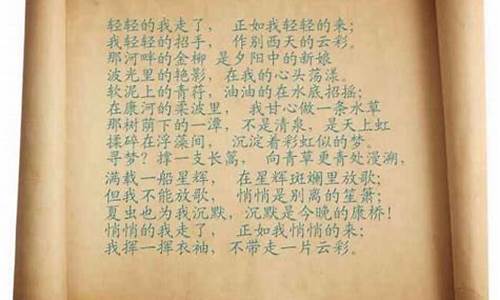 轻轻的我走了， 正如我轻轻的来；
我轻轻的招手， 作别西天的云彩。
那河畔的金柳 是夕阳中的新娘
波光里的艳影，在我的心头荡漾。
软泥上的青荇，油油的在水底招摇；
在康河的柔波里， 我甘心做一条水草
那树荫下的一潭，不是清泉，是天上虹
揉碎在浮藻间， 沉淀着彩虹似的梦。
寻梦？撑一支长蒿， 向青草更青处漫溯，
满载一船星辉， 在星辉斑斓里放歌；
但我不能放歌， 悄悄是别离的笙箫；
夏虫也为我沉默，沉默是今晚的康桥！
悄悄的我走了， 正如我悄悄的来；
我挥一挥衣袖，不带走一片云彩。